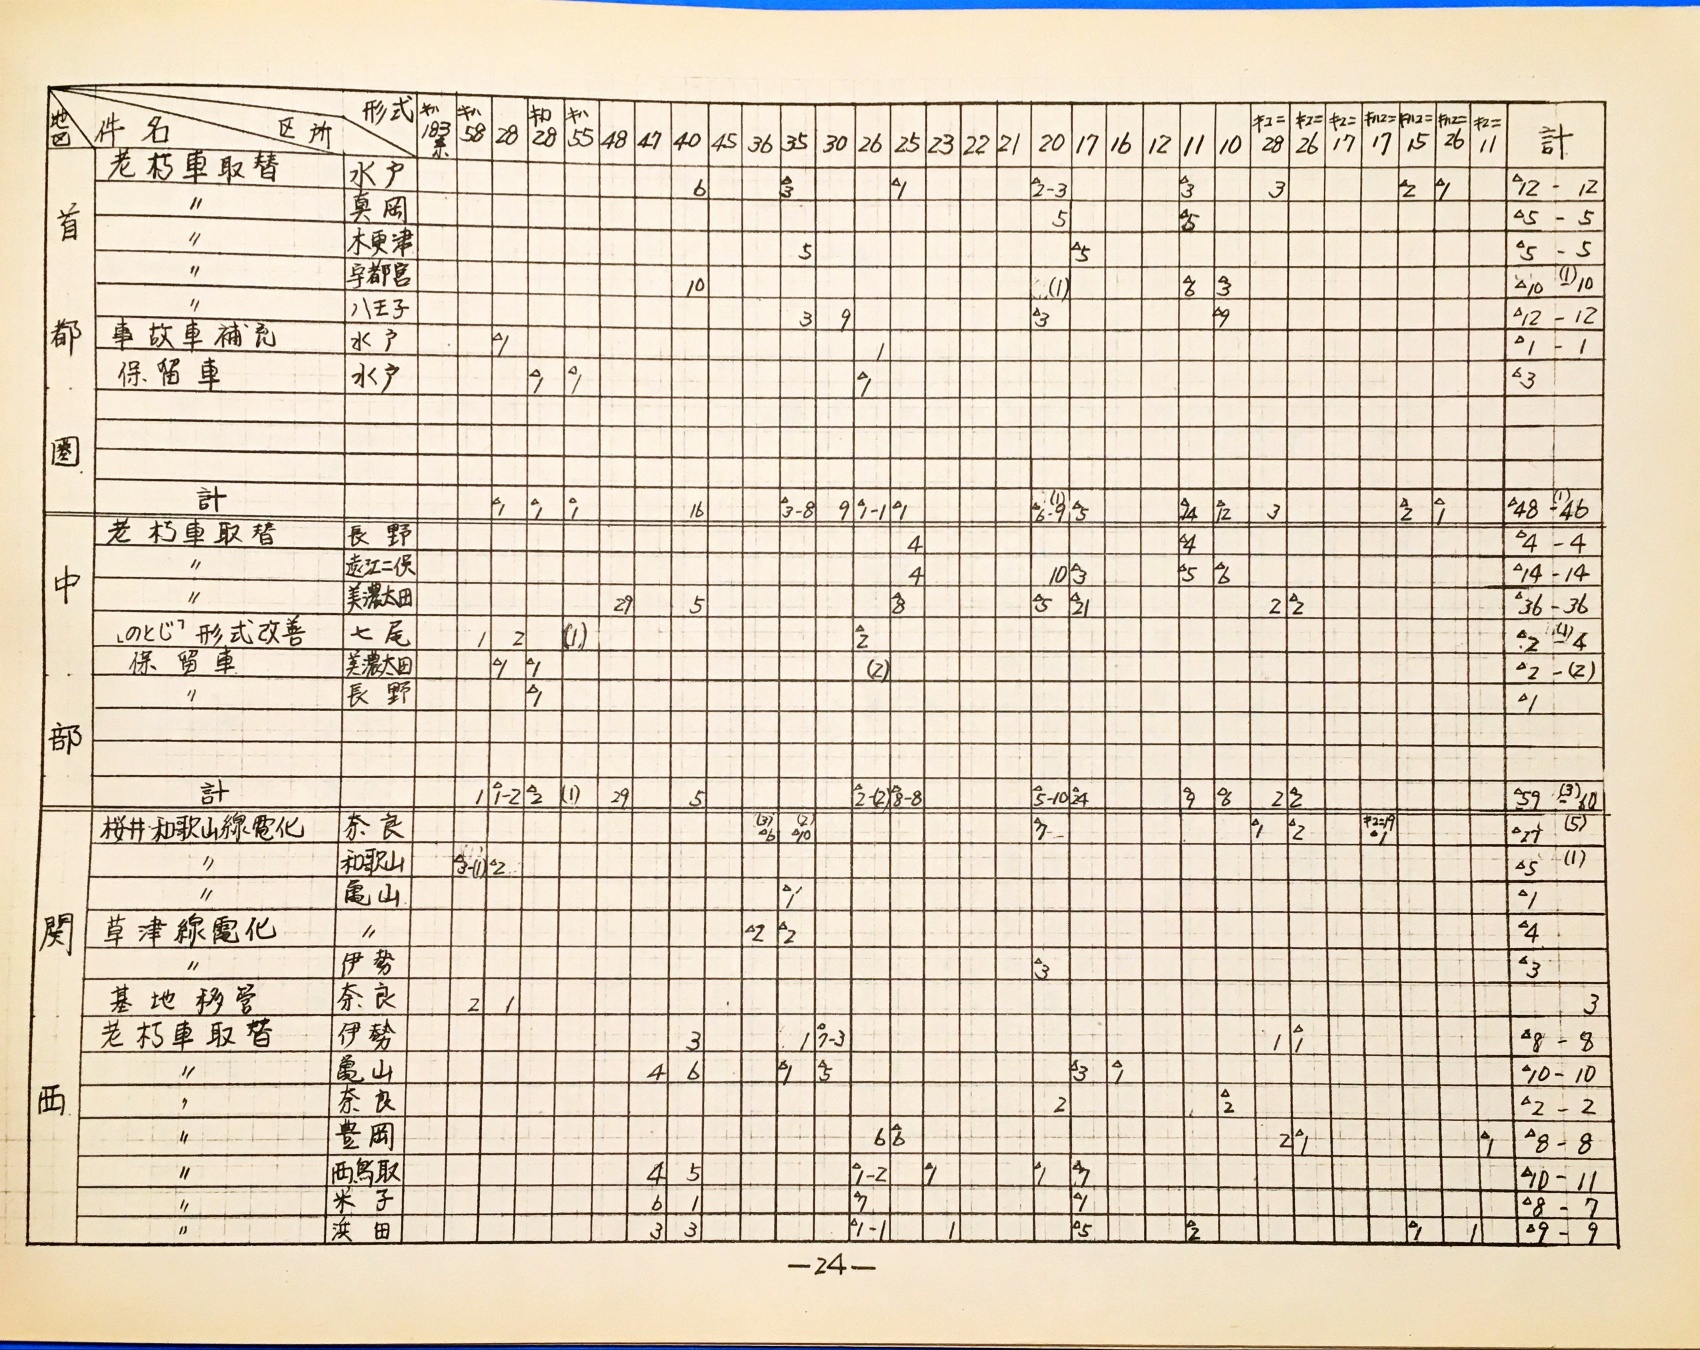 地区 件名 区所 形式 キハ183系 キハ58 28 キロ28 キハ55 48 47 40 45 36 35 30 26 25 23 22 21 20 17 16 12 11 10 キユニ28 キユニ26 キユニ17 キハユニ17 キハユニ15 キハユニ26 キユニ11 計
首都圏
老朽車取替 水戸 6 △3 △1 △2-3 △3 3 △2 △1 △12 - 12
〃 真岡 5 △5 △5 - 5
〃 木更津 5 △5 △5 - 5
〃 宇都宮 10 (1) △8 △3 △10 - (1)10
〃 八王子 3 9 △3 △9 △12 - 12
事故車補充 水戸 △1 1 △1 - 1
保留車 水戸 △1 △1 △1 △3
計 △1 △1 △1 16 △3-8 9 △1-1 △1 △6-9(1) △5 △14 △12 3 △2 △1 △48 - (1)46
中部
老朽車取替 長野 4 △4 △4 - 4
〃 遠江二俣 4 10 △3 △5 △6 △14 - 14
〃 美濃太田 29 5 △8 △5 △21 2 △2 △36 - 36
「のとじ」形式改善 七尾 1 2 (1) △2 △2 - (1)4
保留車 美濃太田 △1 △1 (2) △2 - (2)
〃 長野 △1 △1
計 1 △1-2 △2 (1) 29 5 △2-(2) △8-8 △5-10 △24 △9 △6 2 △2 △59 - (3)60
関西
桜井・和歌山線電化 奈良 (3)△6 (2)△10 △7 △1 △2 キユニ19△1 △27 (5)
〃 和歌山 △3-(1) △2 △5 (1)
〃 亀山 △1 △1
草津線電化 〃 △2 △2 △4
〃 伊勢 △3 △3
基地移管 奈良 2 1 3
老朽車取替 伊勢 3 1 △7-3 1 △1 △8 - 8
〃 亀山 4 6 △1 △5 △3 △1 △10 - 10
〃 奈良 2 △2 △2 - 2
〃 豊岡 6 △6 2 △1 △1 △8 - 8
〃 西鳥取 4 5 △1-2 △1 △1 △7 △10 - 11
〃 米子 6 1 △7 △1 △8 - 7
〃 浜田 3 3 △1-1 1 △5 △2 △1 1 △9 - 9
—24—